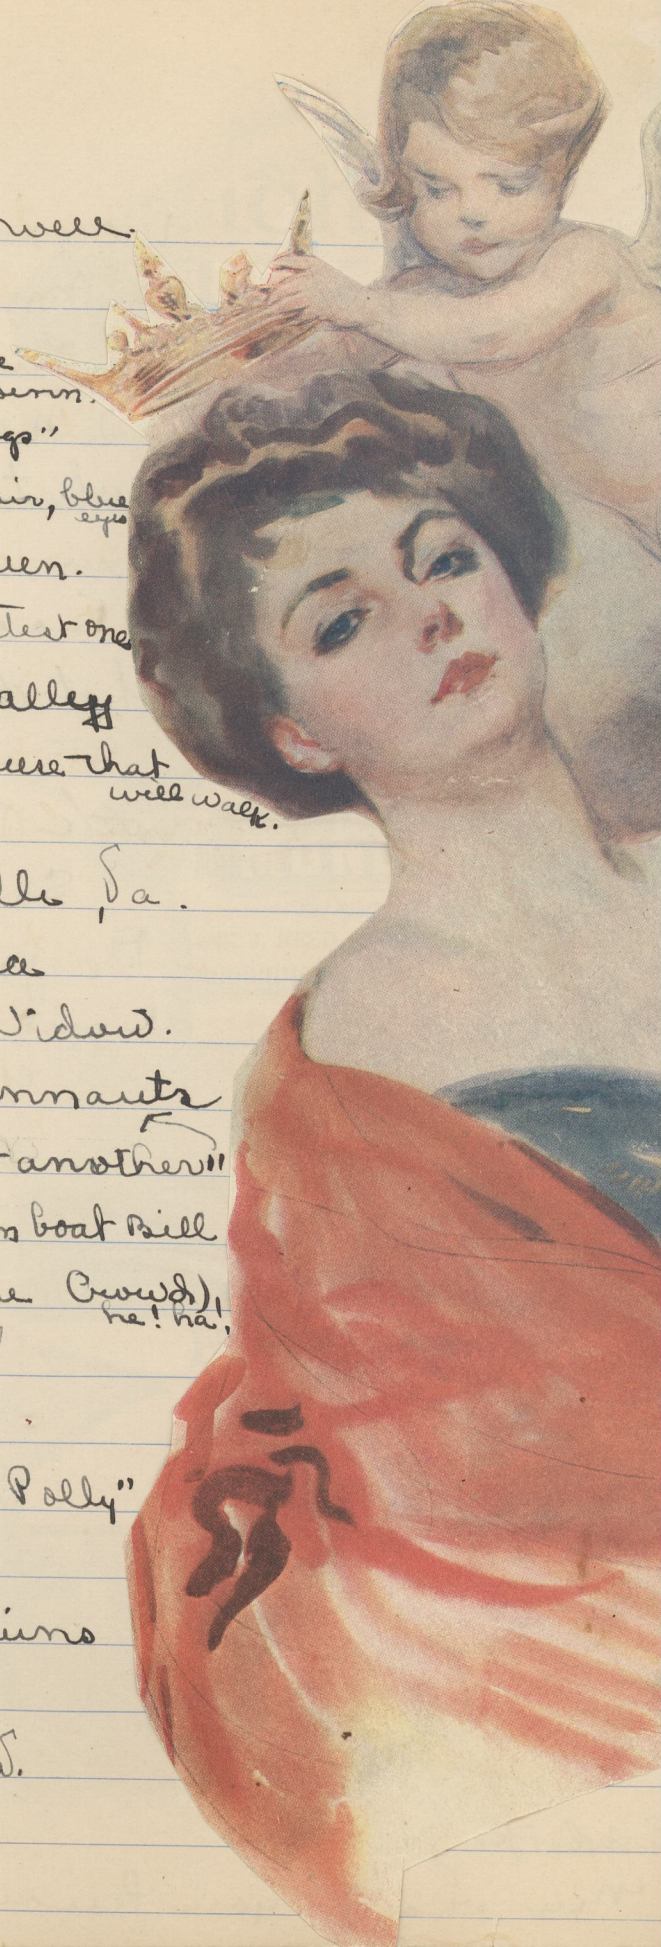 well.
e
ginn.
gs"
air, blue
eyes
uen.
test one
alley
use that
will walk.
lle, Pa.
a
Widow.
onnauts
another"
n boat Bill
e Crowd),
he! ha!
Polly"